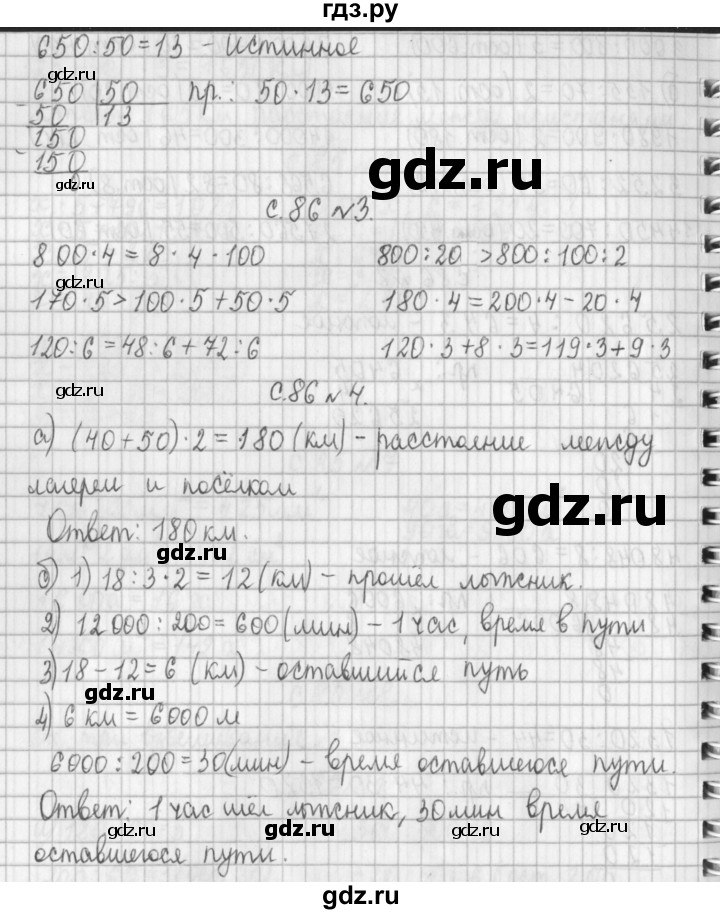 гдз.ру
650:50=13 - Истинное
gdz.ru
650 50 пр.: 50·13=650
50 13
150
150
gdz.ru
0
gdz.ru
с.86 №3.
800·4=8·4·100 800:20 >800:100:2
gdz.ru
170·5>100·5+50·5 180·4=200·4-20·4
120:6=48:6+72:6 120·3+8·3=119·3+9·3
gdz.ru
с.86 №4.
а) (40+50)·2=180(км)-расстояние между
лагерем и посёлком
gdz.ru
Ответ: 180 км.
gdz.ru
б) 1) 18:3·2=12(км)-прошёл лыжник.
2) 12000:200=600(мин)-1 час, время в пути
3) 18-12=6 (км)-оставшийся путь
gdz.ru
4) 6 км = 6000 м
6000:200=30(мин)-время оставшегося пути.
Ответ: 1 час шёл лыжник, 30 мин время
gdz.ru gdz.ru gdz.ru gdz.ru
оставшегося пути.
gdz.ru